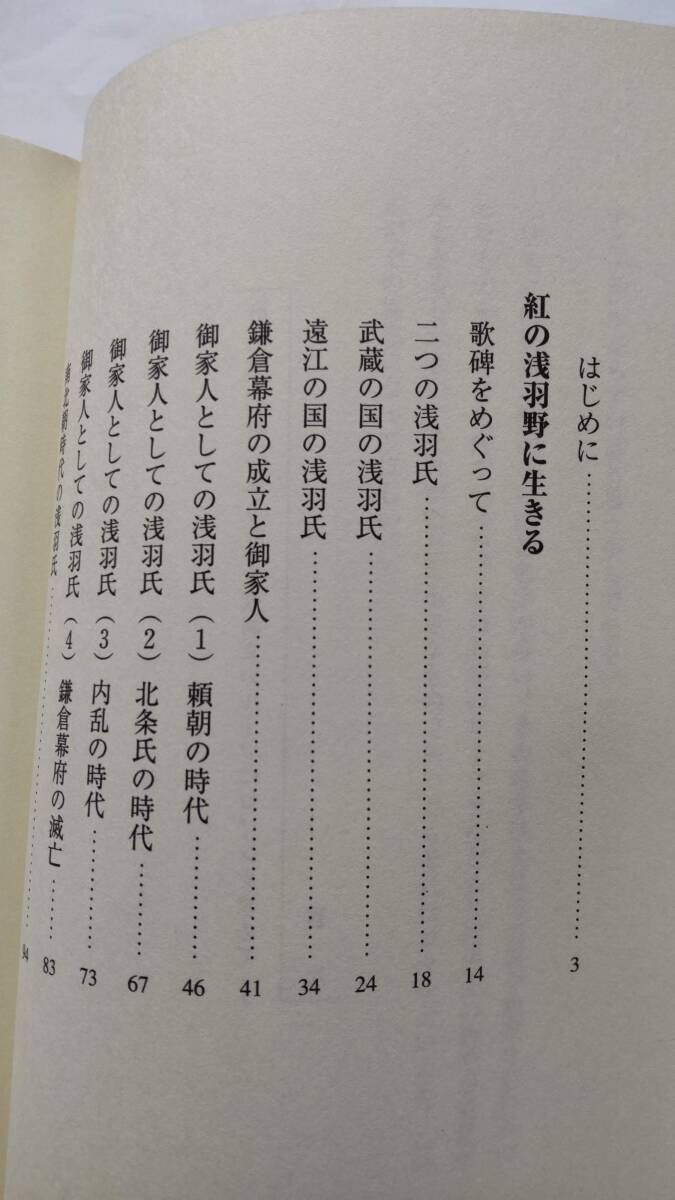 はじめに……………………………3
紅の浅羽野に生きる
歌碑をめぐって……………………………14
二つの浅羽氏……………………………18
武蔵の国の浅羽氏……………………………24
遠江の国の浅羽氏……………………………34
鎌倉幕府の成立と御家人……………………………41
御家人としての浅羽氏（1）頼朝の時代…………46
御家人としての浅羽氏（2）北条氏の時代…………67
御家人としての浅羽氏（3）内乱の時代…………73
御家人としての浅羽氏（4）鎌倉幕府の滅亡………83
南北朝時代の浅羽氏……………………………94